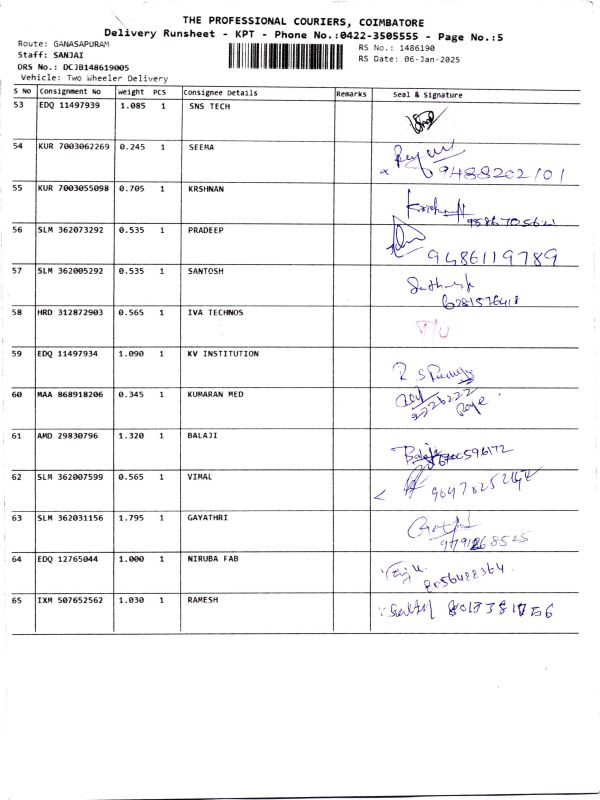 THE PROFESSIONAL COURIERS, COIMBATORE
Delivery Runsheet - KPT - Phone No.:0422-3505555 - Page No.:5
Route: GANASAPURAM
RS No.: 1486190
Staff: SANJAI
RS Date: 06-Jan-2025
DRS No.: DCJB148619005
Vehicle: Two Wheeler Delivery
S No Consignment No Weight PCS Consignee Details Remarks Seal & Signature
53 EDQ 11497939 1.085 1 SNS TECH
54 KUR 7003062269 0.245 1 SEEMA
9488202101
55 KUR 7003055098 0.705 1 KRSHNAN
56 SLM 362073292 0.535 1 PRADEEP
9486119789
57 SLM 362005292 0.535 1 SANTOSH
58 HRD 312872903 0.565 1 IVA TECHNOS
59 EDQ 11497934 1.090 1 KV INSTITUTION
60 MAA 868918206 0.345 1 KUMARAN MED
61 AMD 29830796 1.320 1 BALAJI
Balaji
62 SLM 362007599 0.565 1 VIMAL
63 SLM 362031156 1.795 1 GAYATHRI
64 EDQ 12765044 1.000 1 NIRUBA FAB
8056488364
65 IXM 507652562 1.030 1 RAMESH